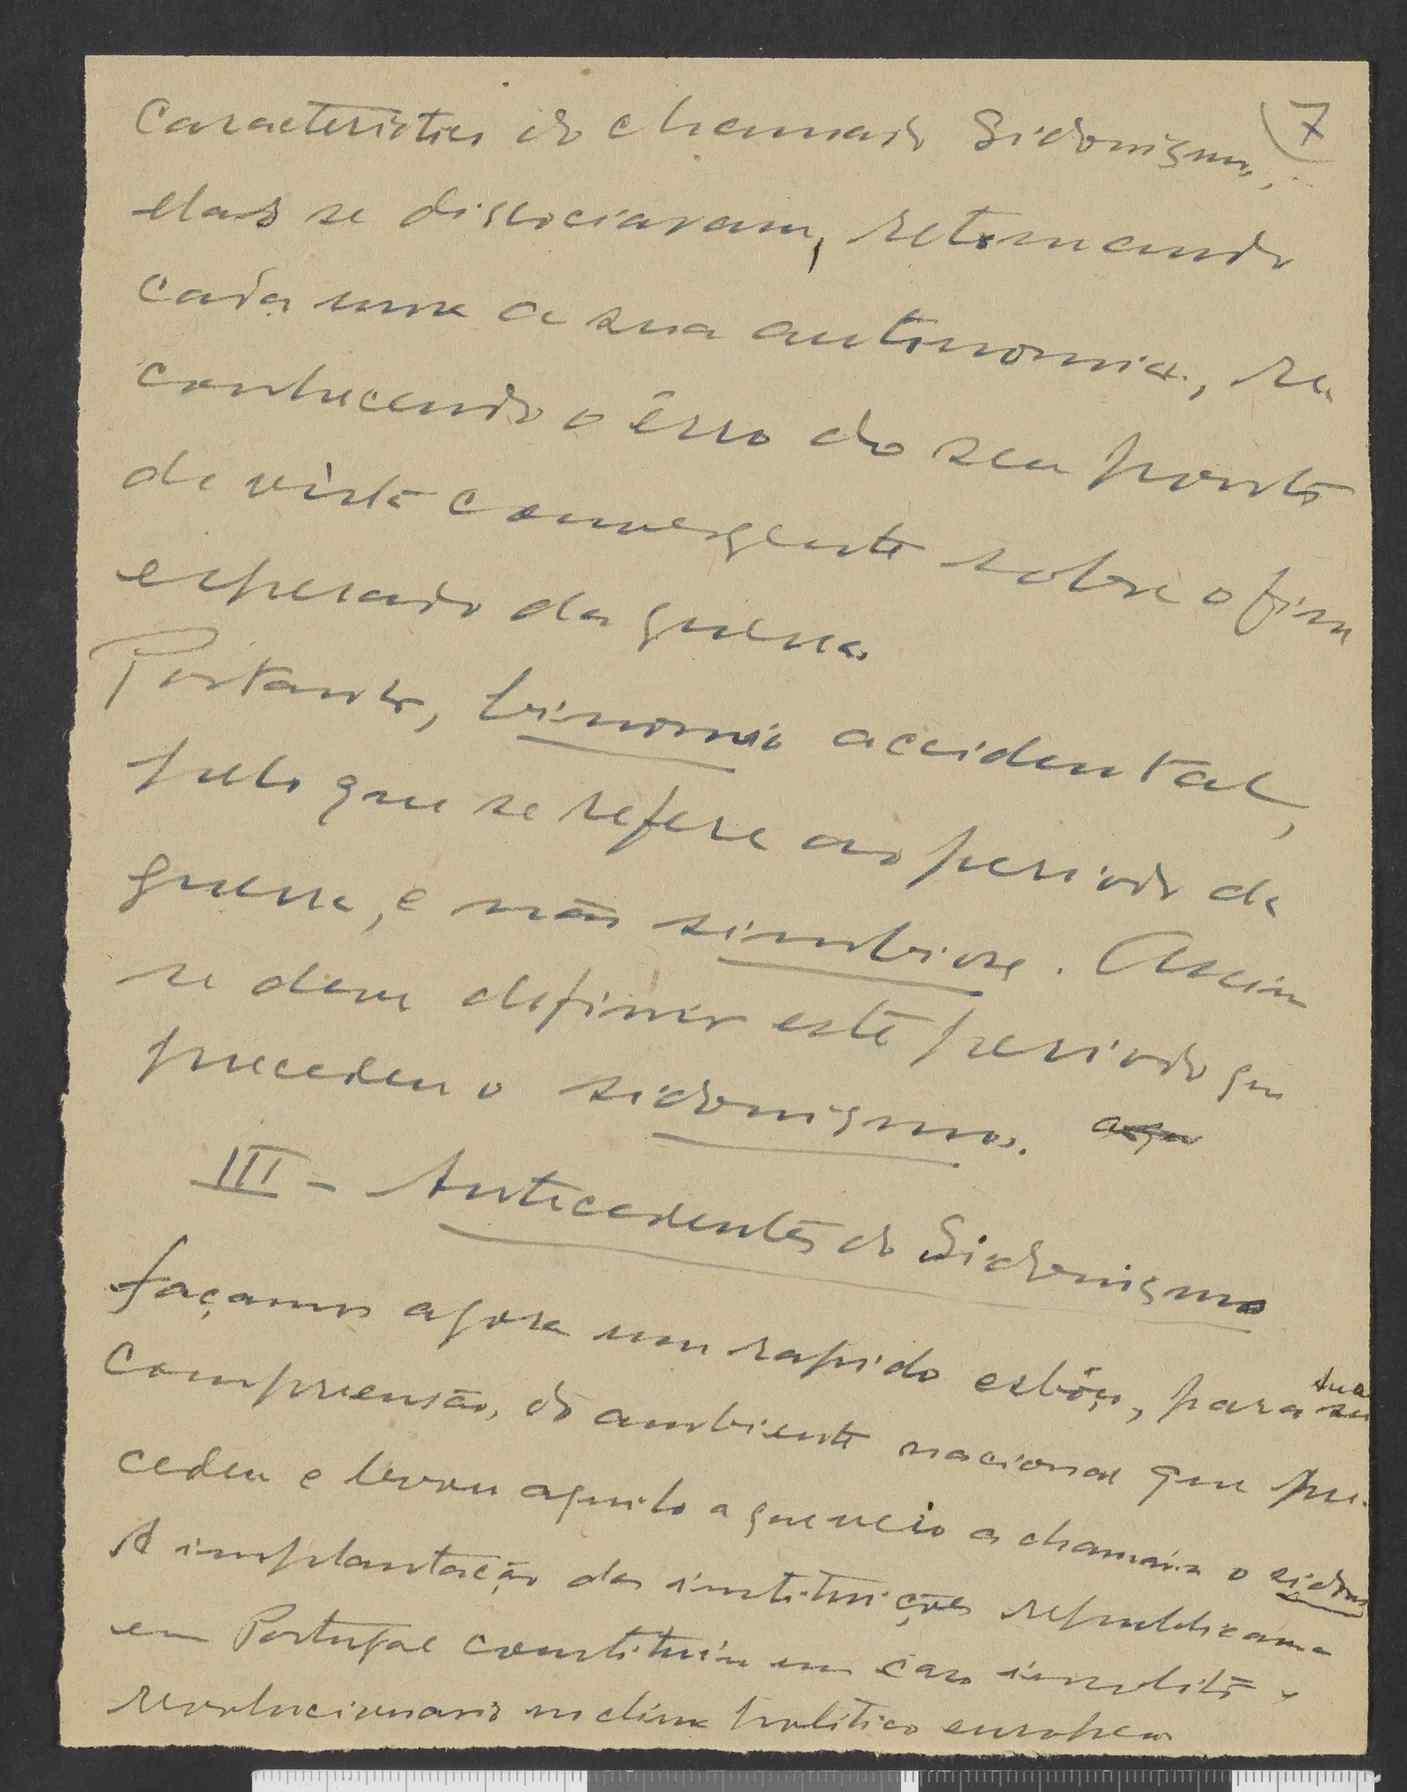 7
caracteristicas do chamado Sidonismo,
elas se dissociaram, retomando
cada uma a sua autonomia, re-
conhecendo o êrro do seu ponto
de vista convergente sobre o fim
esperado da guerra.
Portanto, binomio accidental,
pelo que se refere ao periodo da
guerra, e não simbiose. Assim
se deve definir este periodo que
precedeu o sidonismo.
III - Antecedentes do Sidonismo
Façamos agora um rapido esbôço, para sua
compreensão, do ambiente nacional que pre-
cedeu e levou aquilo a que veio a chamar-se o sidonis
A implantação das instituições republicanas
em Portugal constituiu um caso insolito e
revolucionario no clima politico europeu